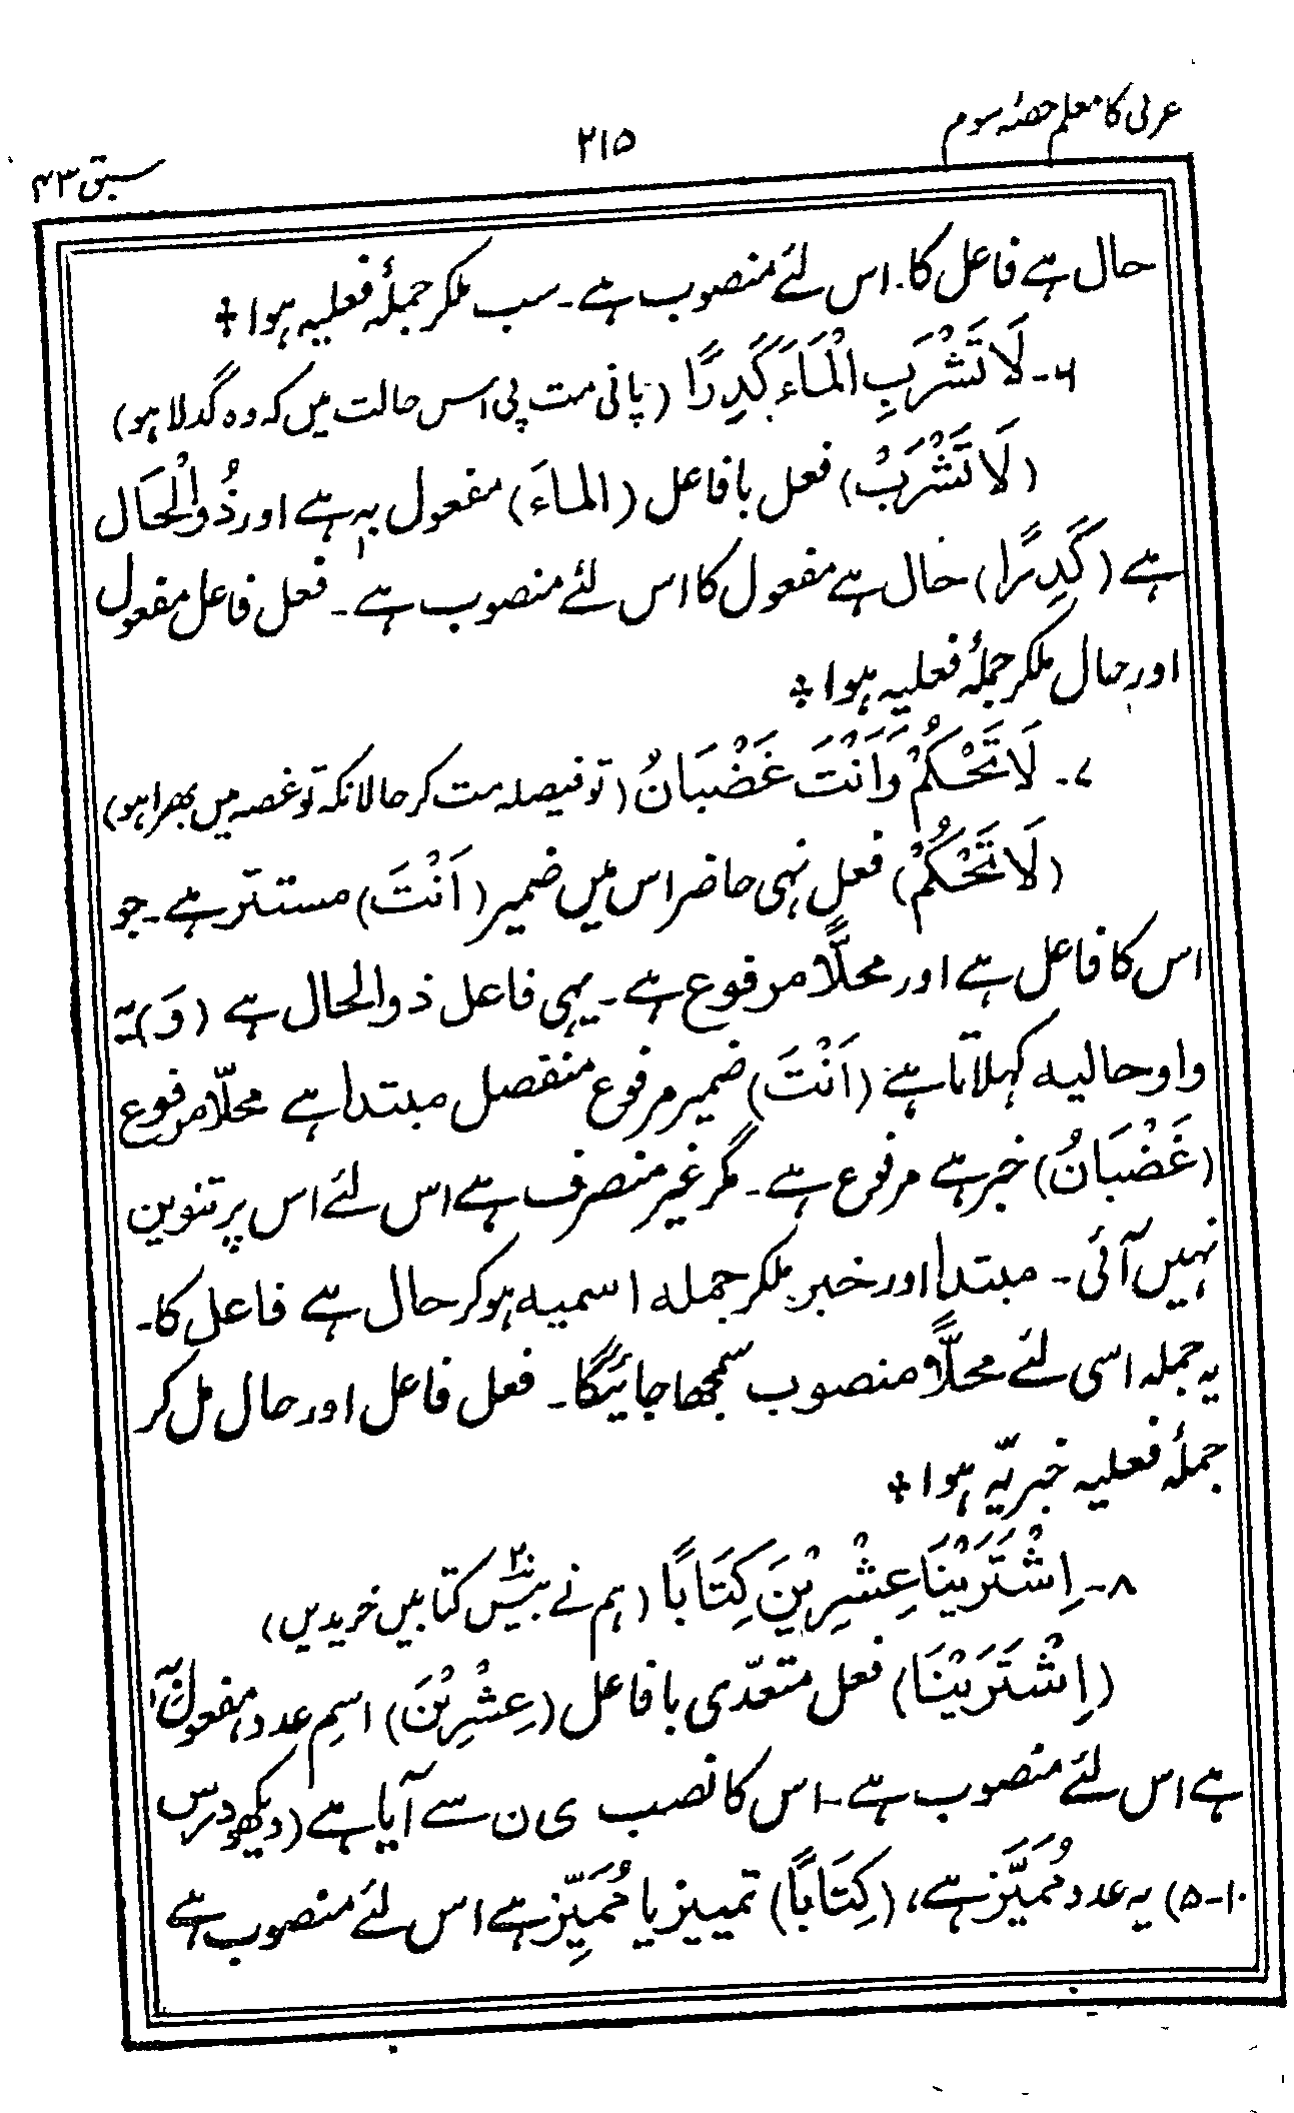 عربی کا معلم حصہ سوم
۲۱۵
سبق ۴۳
حال ہے فاعل کا۔ اس لئے منصوب ہے۔ سب ملکر جملۂ فعلیہ ہوا ÷
۶۔ لَا تَشْرَبِ الْمَاءَ كَدِرًا (پانی مت پی اس حالت میں کہ وہ گدلا ہو)
(لَا تَشْرَبْ) فعل با فاعل (الماءَ) مفعول بہٖ ہے اور ذُوالْحَال
ہے (كَدِرًا) حال ہے مفعول کا اس لئے منصوب ہے۔ فعل فاعل مفعول
اور حال ملکر جملۂ فعلیہ ہوا ÷
۷۔ لَا تَحْكُمْ وَاَنْتَ غَضْبَانُ (تو فیصلہ مت کر حالانکہ تو غصہ میں بھرا ہو)
(لَا تَحْكُمْ) فعل نہی حاضر اس میں ضمیر (اَنْتَ) مستتر ہے۔ جو
اس کا فاعل ہے اور محلًّا مرفوع ہے۔ یہی فاعل ذوالحال ہے (وَ) یہ
واو حالیہ کہلاتا ہے (اَنْتَ) ضمیر مرفوع منفصل مبتدا ہے محلّا مرفوع
(غَضْبَانُ) خبر ہے مرفوع ہے۔ مگر غیر منصرف ہے اس لئے اس پر تنوین
نہیں آئی۔ مبتدا اور خبر ملکر جملہ اسمیہ ہو کر حال ہے فاعل کا۔
یہ جملہ اسی لئے محلًّا منصوب سمجھا جائیگا۔ فعل فاعل اور حال مل کر
جملۂ فعلیہ خبریّہ ہوا ÷
۸۔ اِشْتَرَيْنَا عِشْرِيْنَ كِتَابًا (ہم نے بیس ۲۰ کتابیں خریدیں)
(اِشْتَرَيْنَا) فعل متعدّی با فاعل (عِشْرِيْنَ) اسم عدد، مفعول بہٖ
ہے اس لئے منصوب ہے۔ اس کا نصب ی ن سے آیا ہے (دیکھو درس
۱۰-۵) یہ عدد مُمَيَّز ہے، (كِتَابًا) تمییز یا مُمَيِّز ہے اس لئے منصوب ہے